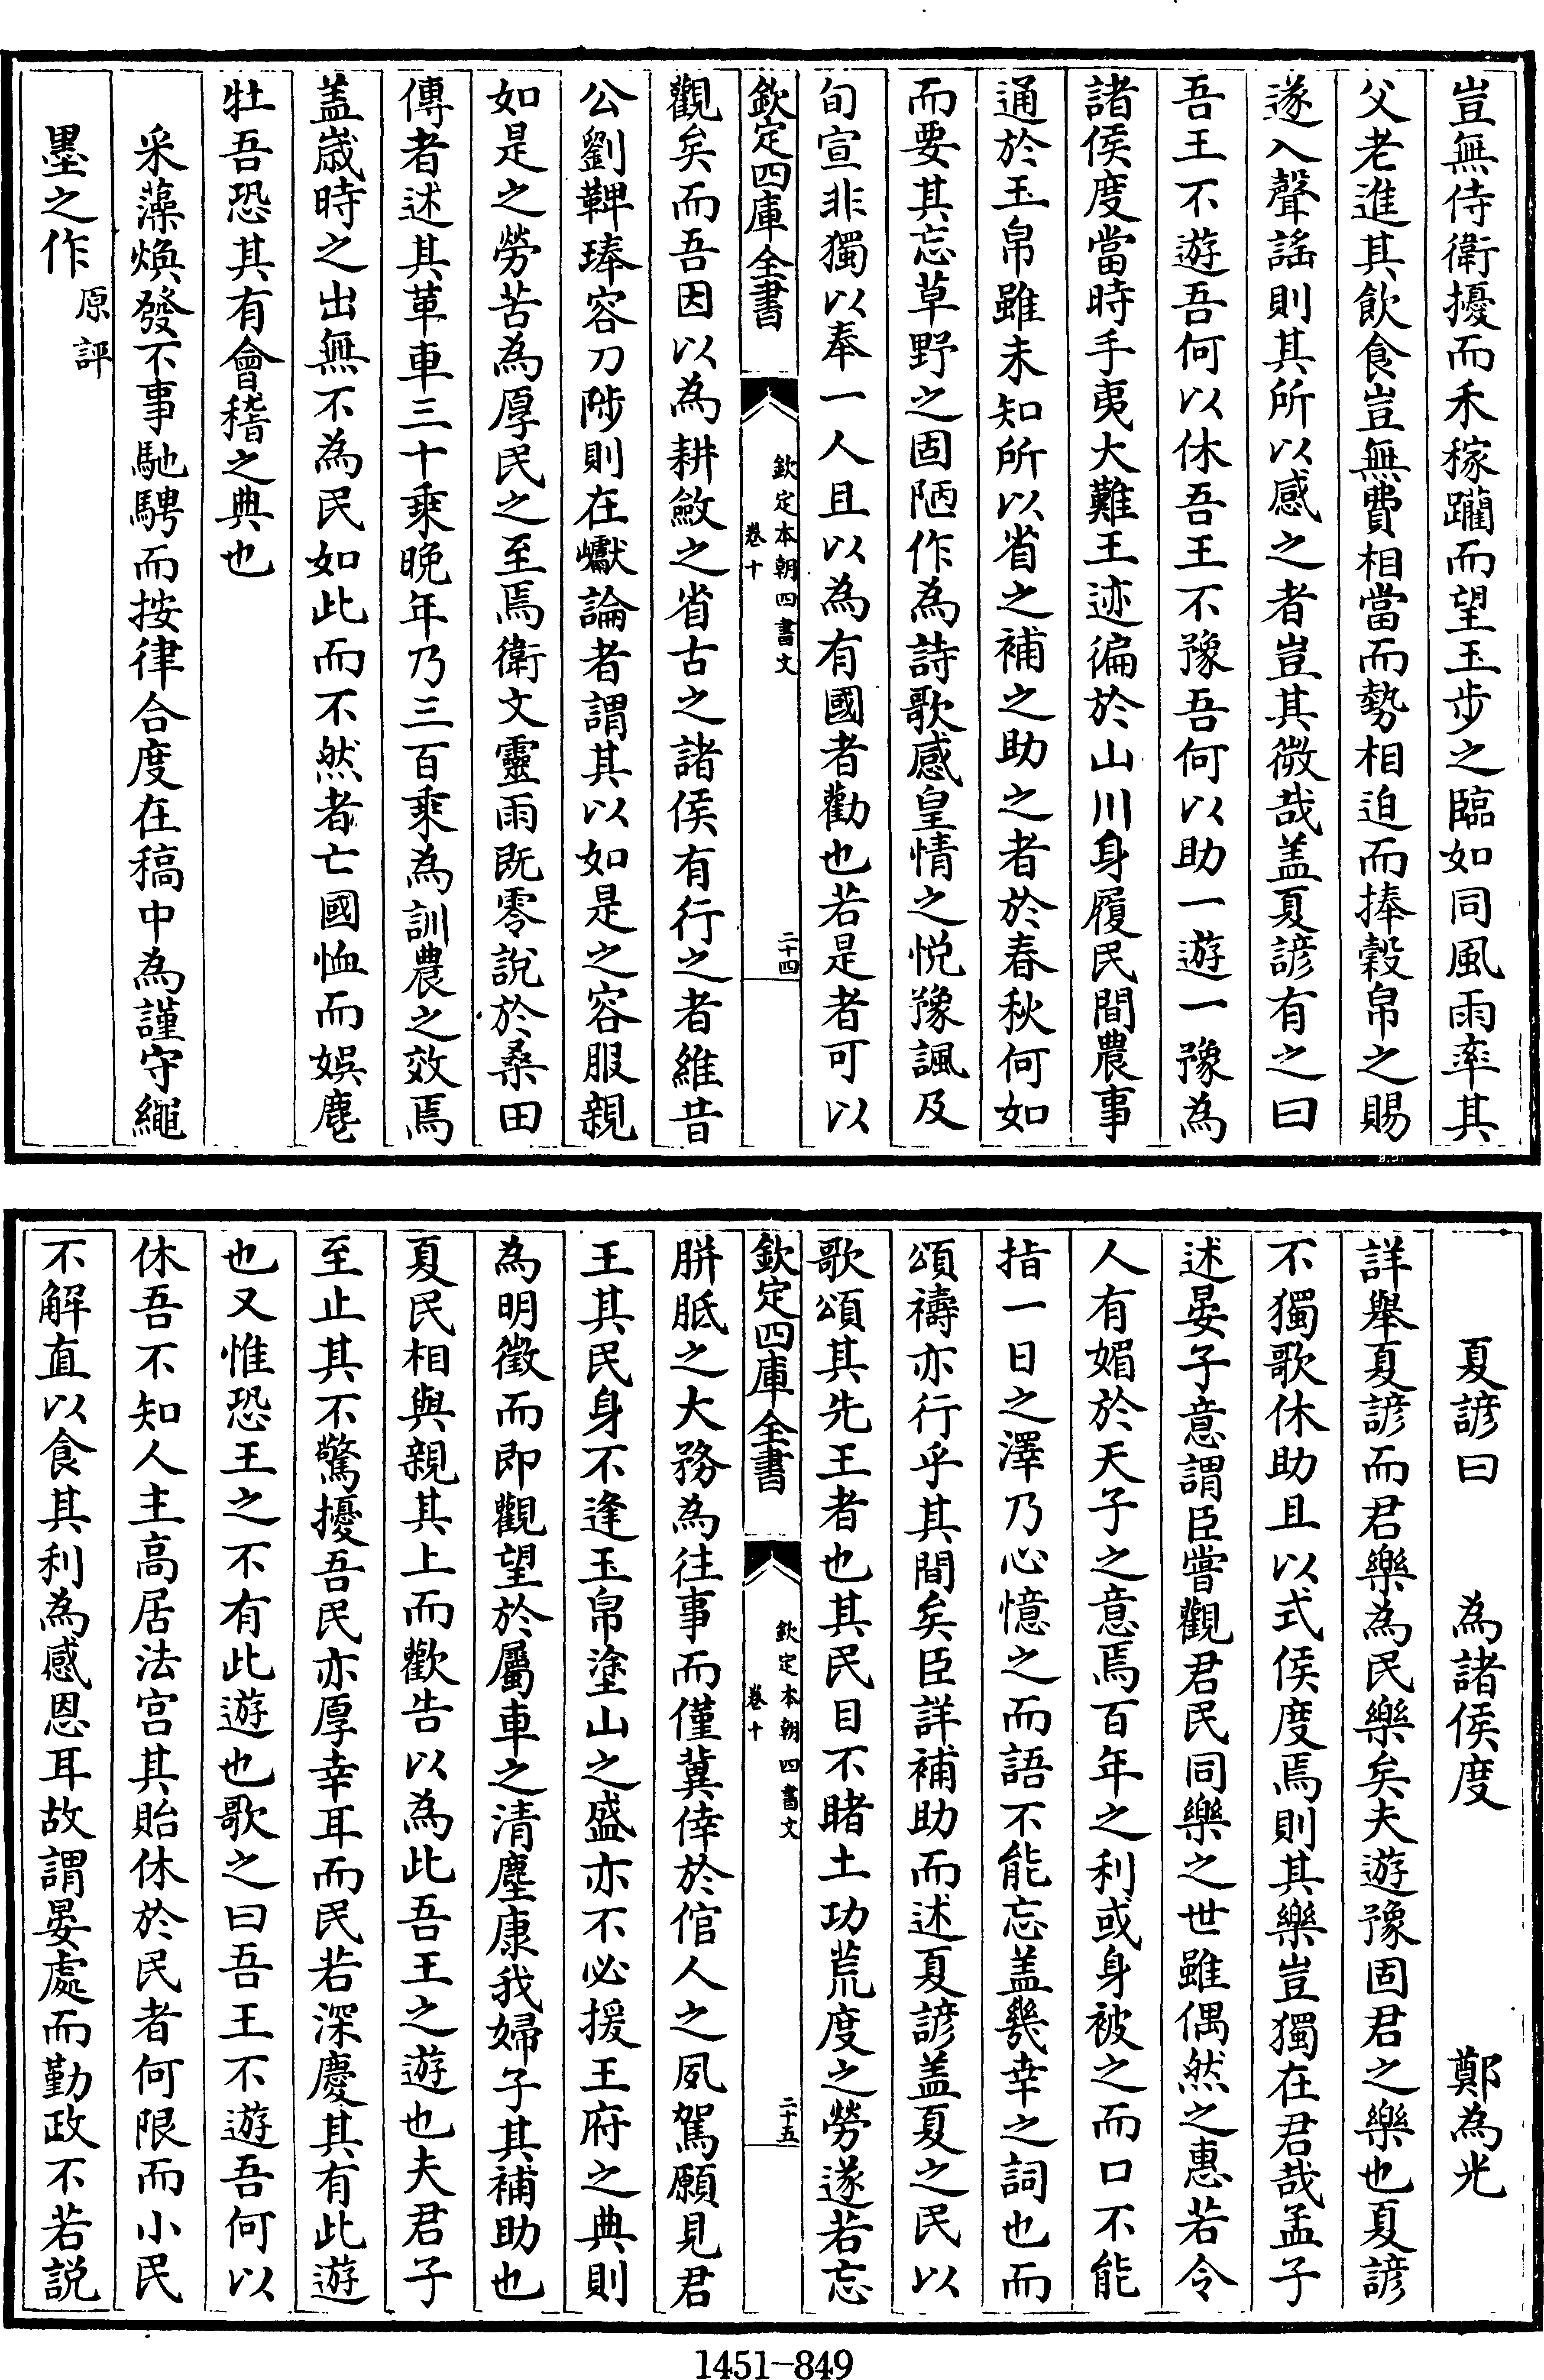 豈無侍衛擾而禾稼躪而望玉步之臨如同風雨率其
父老進其飲食豈無費相當而勢相迫而捧穀帛之賜
遂入聲謡則其所以感之者豈其微哉盖夏諺有之曰
吾王不遊吾何以休吾王不豫吾何以助一遊一豫為
諸侯度當時手夷大難王迹徧於山川身履民間農事
通於玉帛雖未知所以省之補之助之者於春秋何如
而要其忘草野之固陋作為詩歌感皇情之悦豫諷及
旬宣非獨以奉一人且以為有國者勸也若是者可以
欽定四庫全書
欽定本朝四書文
卷十
二十四
觀矣而吾因以為耕斂之省古之諸侯有行之者維昔
公劉鞞琫容刀陟則在巘論者謂其以如是之容服親
如是之勞苦為厚民之至焉衛文靈雨既零說於桑田
傳者述其革車三十乘晚年乃三百乘為訓農之效焉
盖嵗時之出無不為民如此而不然者亡國恤而娱麀
牡吾恐其有會稽之典也
采藻煥發不事馳騁而按律合度在稿中為謹守繩
墨之作原評
夏諺曰　為諸侯度　鄭為光
詳舉夏諺而君樂為民樂矣夫遊豫固君之樂也夏諺
不獨歌休助且以式侯度焉則其樂豈獨在君哉孟子
述晏子意謂臣嘗觀君民同樂之世雖偶然之惠若令
人有媚於天子之意焉百年之利或身被之而口不能
指一日之澤乃心憶之而語不能忘盖幾幸之詞也而
頌禱亦行乎其間矣臣詳補助而述夏諺盖夏之民以
歌頌其先王者也其民目不睹土功荒度之勞遂若忘
欽定四庫全書
欽定本朝四書文
卷十
二十五
胼胝之大務為往事而僅冀倖於倌人之夙駕願見君
王其民身不逢玉帛塗山之盛亦不必援王府之典則
為明徵而即觀望於屬車之清塵康我婦子其補助也
夏民相與親其上而歡告以為此吾王之遊也夫君子
至止其不驚擾吾民亦厚幸耳而民若深慶其有此遊
也又惟恐王之不有此遊也歌之曰吾王不遊吾何以
休吾不知人主高居法宫其貽休於民者何限而小民
不解直以食其利為感恩耳故謂晏處而勤政不若説
1451-849